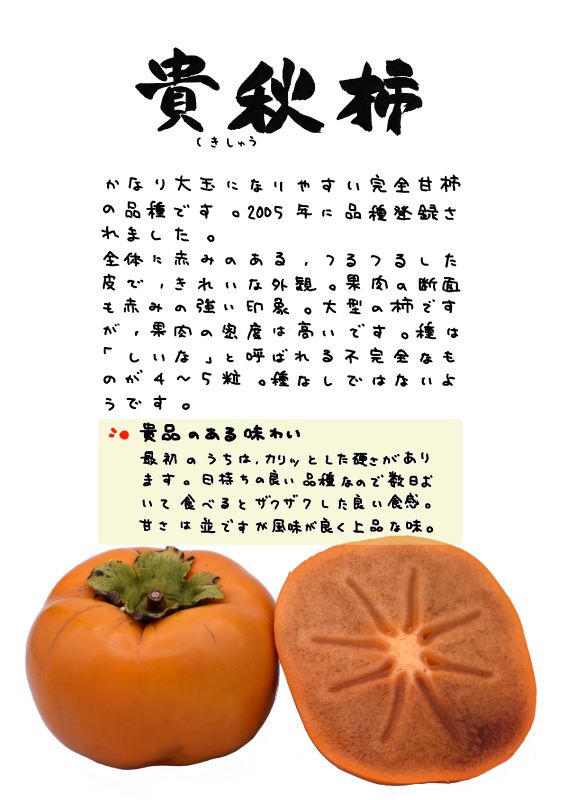 貴秋柿
くきしゅう
かなり大玉になりやすい完全甘柿
の品種です。2005年に品種登録さ
れました。
全体に赤みのある,つるつるした
皮で,きれいな外観。果肉の断面
も赤みの強い印象。大型の柿です
が,果肉の密度は高いです。種は
「しいな」と呼ばれる不完全なも
のが4～5粒。種なしではないよ
うです。
貴品のある味わい
最初のうちは,カリッとした硬さがあり
ます。日持ちの良い品種なので数日お
いて食べるとザクザクした良い食感。
甘さは並ですが風味が良く上品な味。